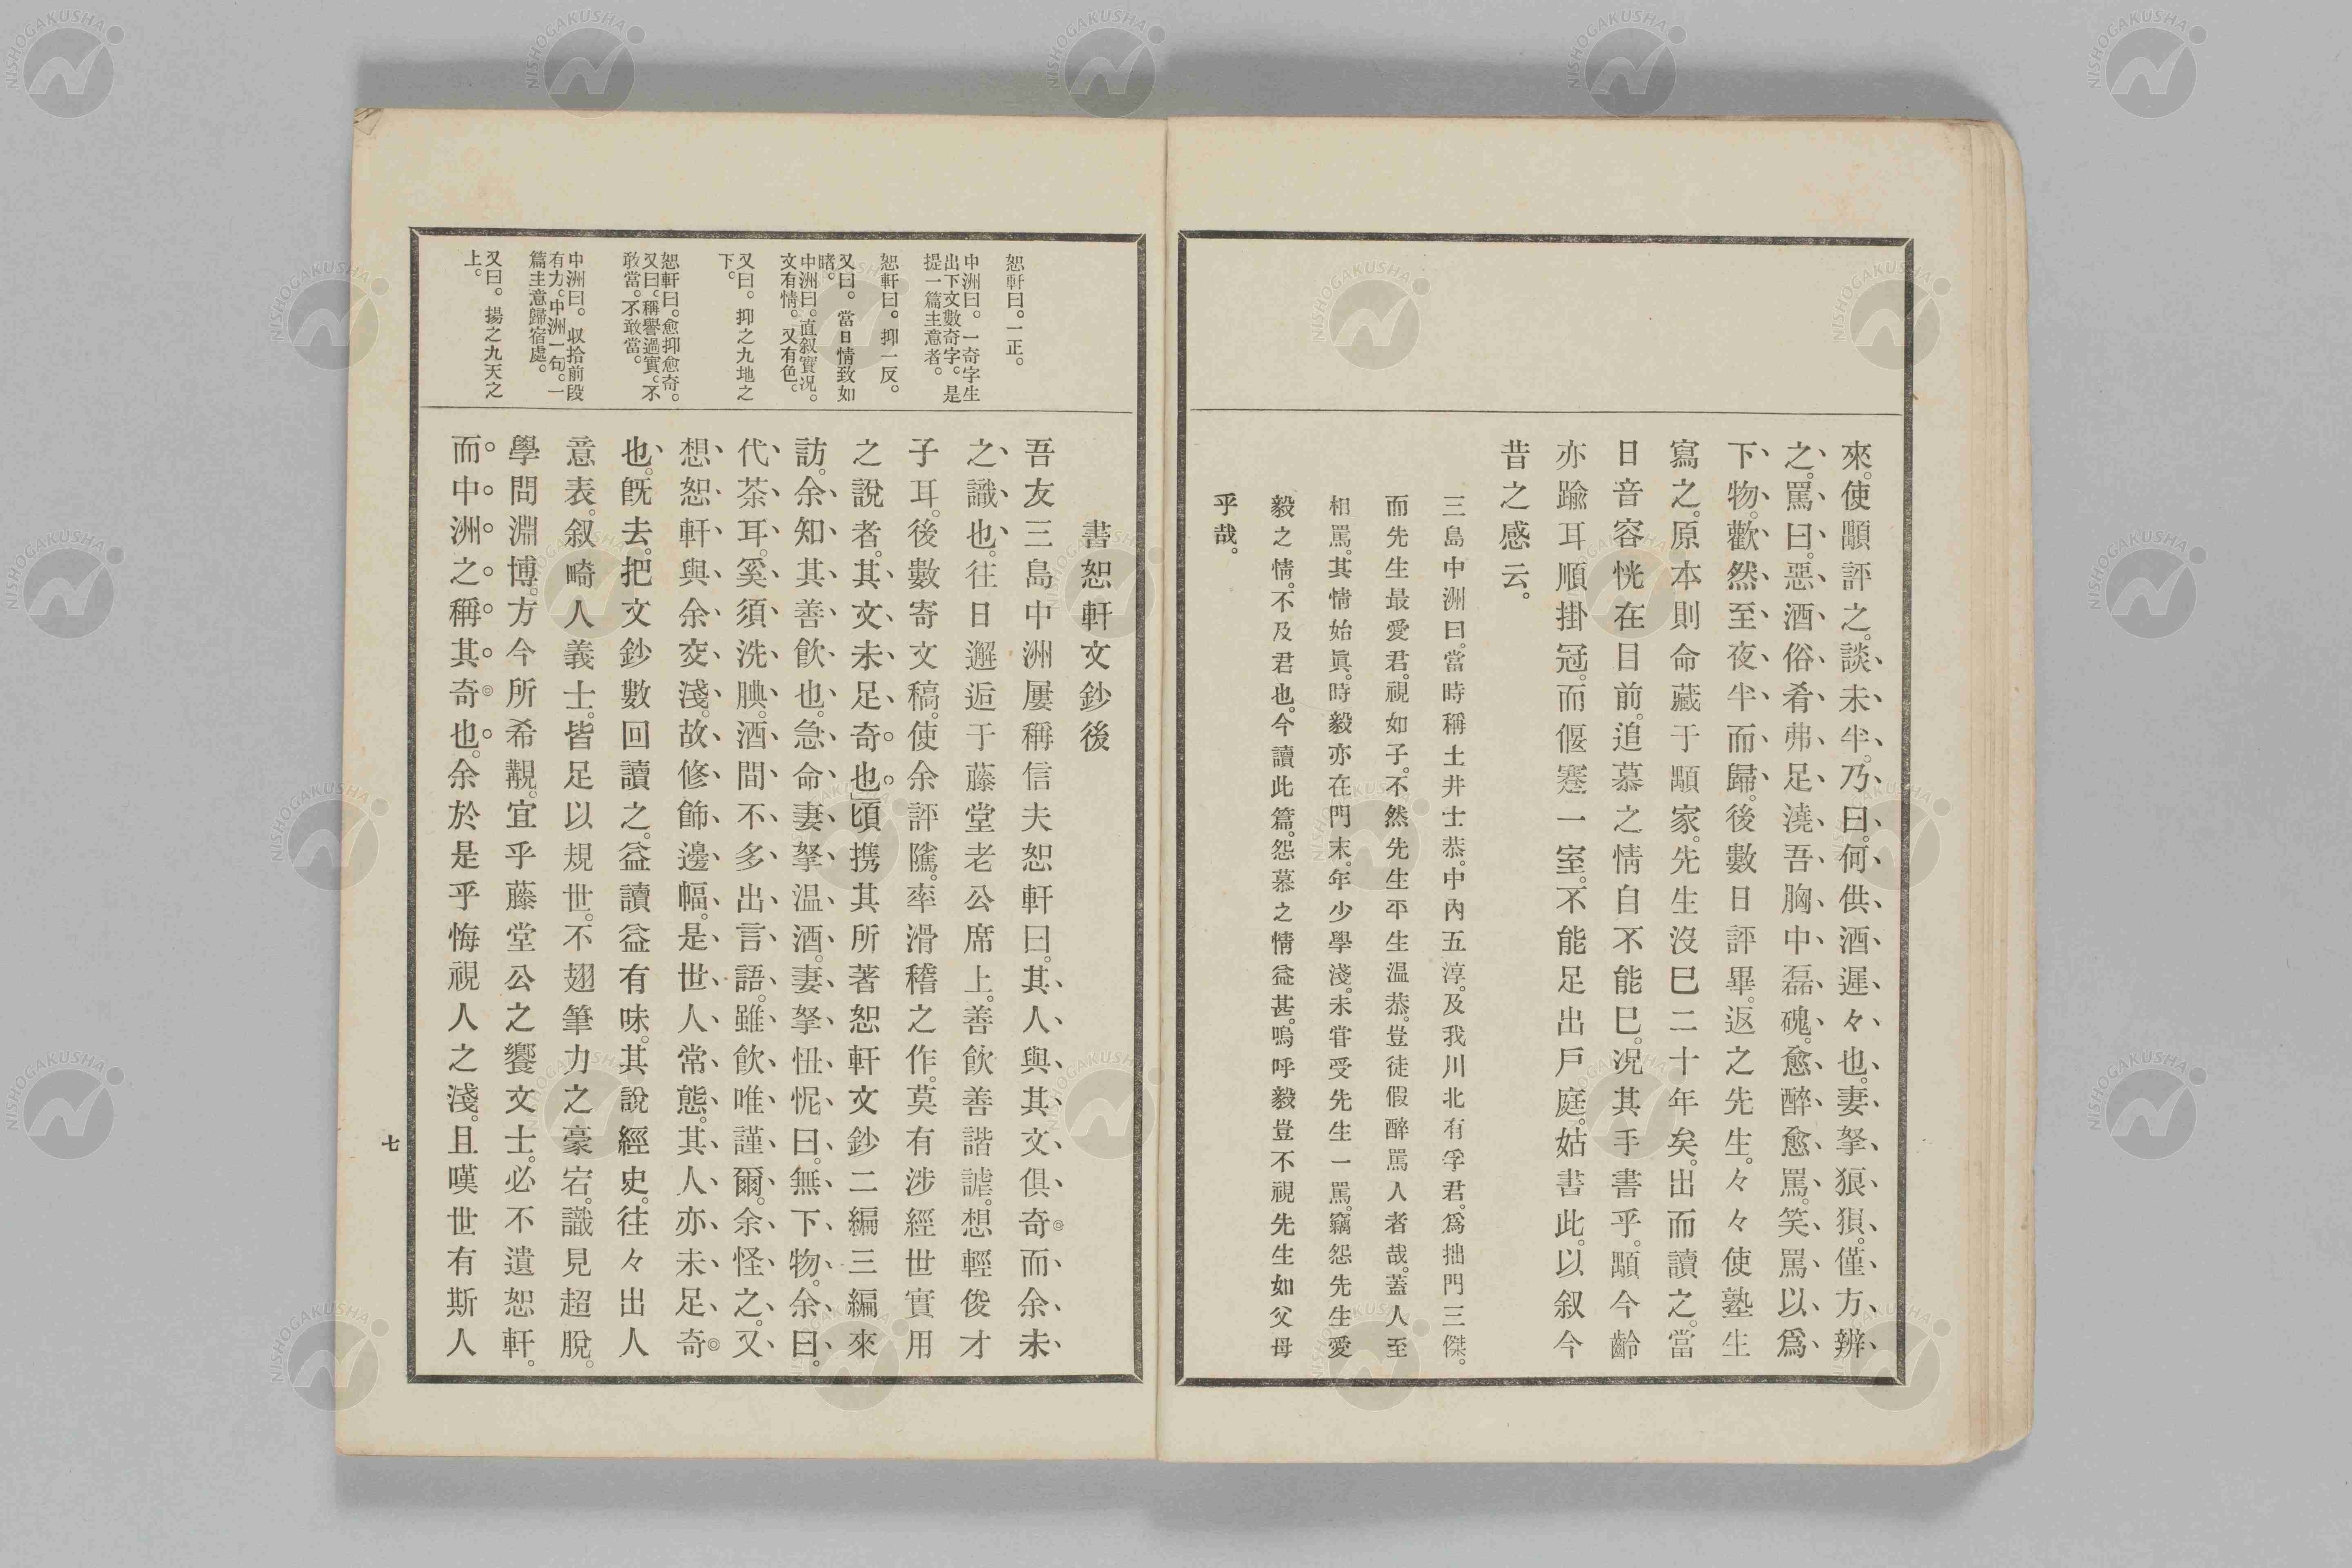 來。使顒評之。談未半。乃曰。何供酒遲々也。妻孥狼狽。僅方辨
之。罵曰。惡酒俗肴弗足澆吾胸中磊磈。愈醉愈罵。笑罵以爲
下物。歡然至夜半而歸。後數日評畢。返之先生。々々使塾生
寫之。原本則命藏于顒家。先生沒巳二十年矣。出而讀之。當
日音容恍在目前。追慕之情自不能巳。況其手書乎。顒今齡
亦踰耳順掛冠。而偃蹇一室。不能足出戶庭。姑書此。以叙今
昔之感云。
三島中洲曰。當時稱土井士恭。中內五淳。及我川北有孚君。爲拙門三傑。
而先生最愛君。視如子。不然先生平生温恭。豈徒假醉罵人者哉。蓋人至
相罵。其情始眞。時毅亦在門末。年少學淺。未甞受先生一罵。竊怨先生愛
毅之情。不及君也。今讀此篇。怨慕之情益甚。嗚呼毅豈不視先生如父母
乎哉。
書恕軒文鈔後
吾友三島中洲屢稱信夫恕軒曰。其人與其文俱奇而余未
之識也。往日邂逅于藤堂老公席上。善飮善諧謔。想輕俊才
子耳。後數寄文稿。使余評隲。率滑稽之作。莫有涉經世實用
之說者。其文未足奇也」頃携其所著恕軒文鈔二編三編來
訪。余知其善飮也。急命妻孥温酒。妻孥忸怩曰。無下物。余曰。
代茶耳。奚須洗腆。酒間不多出言語。雖飮唯謹爾。余怪之。又
想恕軒與余交淺。故修飾邊幅。是世人常態。其人亦未足奇
也。旣去。把文鈔數回讀之。益讀益有味。其說經史。往々出人
意表。叙畸人義士。皆足以規世。不翅筆力之豪宕。識見超脫。
學問淵博。方今所希覯。宜乎藤堂公之饗文士。必不遺恕軒。
而中洲之稱其奇也。余於是乎悔視人之淺。且嘆世有斯人
恕軒曰。一正。
中洲曰。一奇字生
出下文數奇字。是
提一篇主意者。
恕軒曰。抑一反。
又曰。當日情致如
睹。
中洲曰。直叙實況。
文有情。又有色。
又曰。抑之九地之
下。
恕軒曰。愈抑愈奇。
又曰。稱譽過實。不
敢當。不敢當。
中洲曰。収拾前段
有力。中洲一句。一
篇主意歸宿處。
又曰。揚之九天之
上。
七
NISHOGAKUSHA